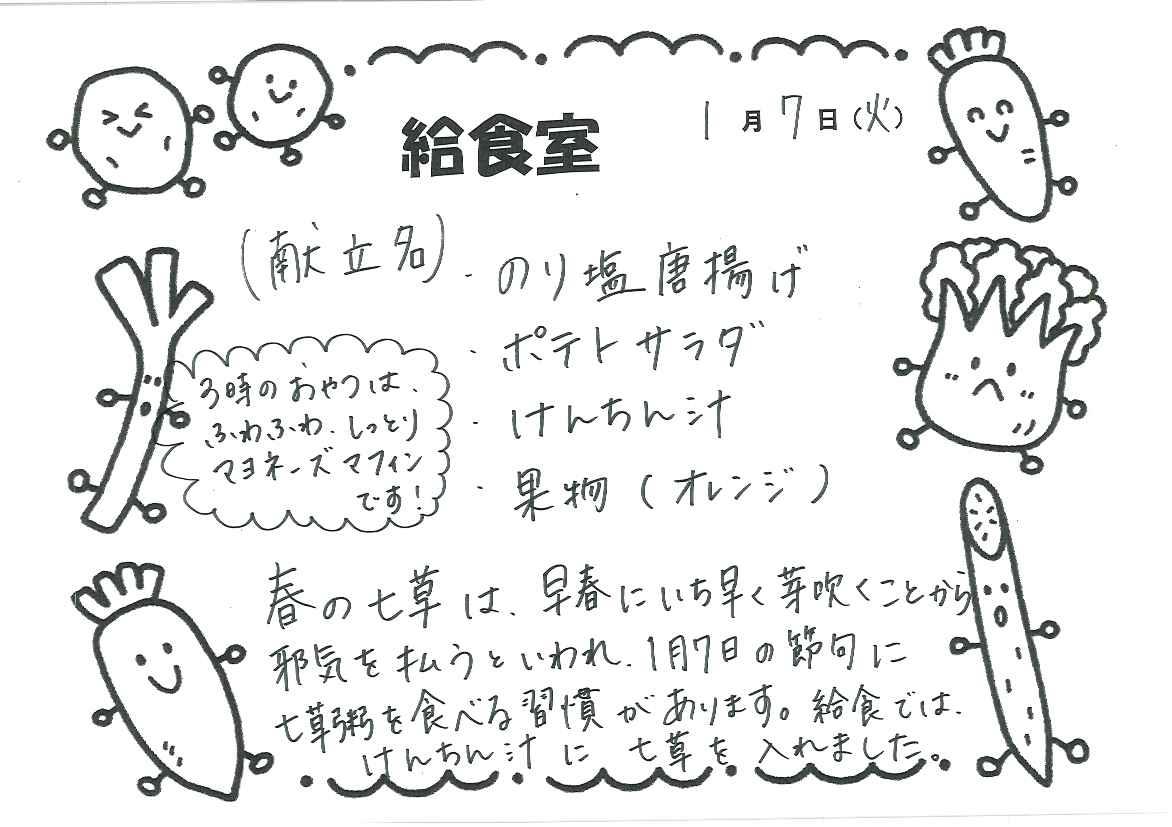 給食室
1月7日(火)
(献立名)
・のり塩唐揚げ
・ポテトサラダ
・けんちん汁
・果物(オレンジ)
3時のおやつは、
ふわふわ、しっとり
マヨネーズマフィン
です!
春の七草は、早春にいち早く芽吹くことから
邪気を払うといわれ、1月7日の節句に
七草粥を食べる習慣があります。給食では、
けんちん汁に七草を入れました。